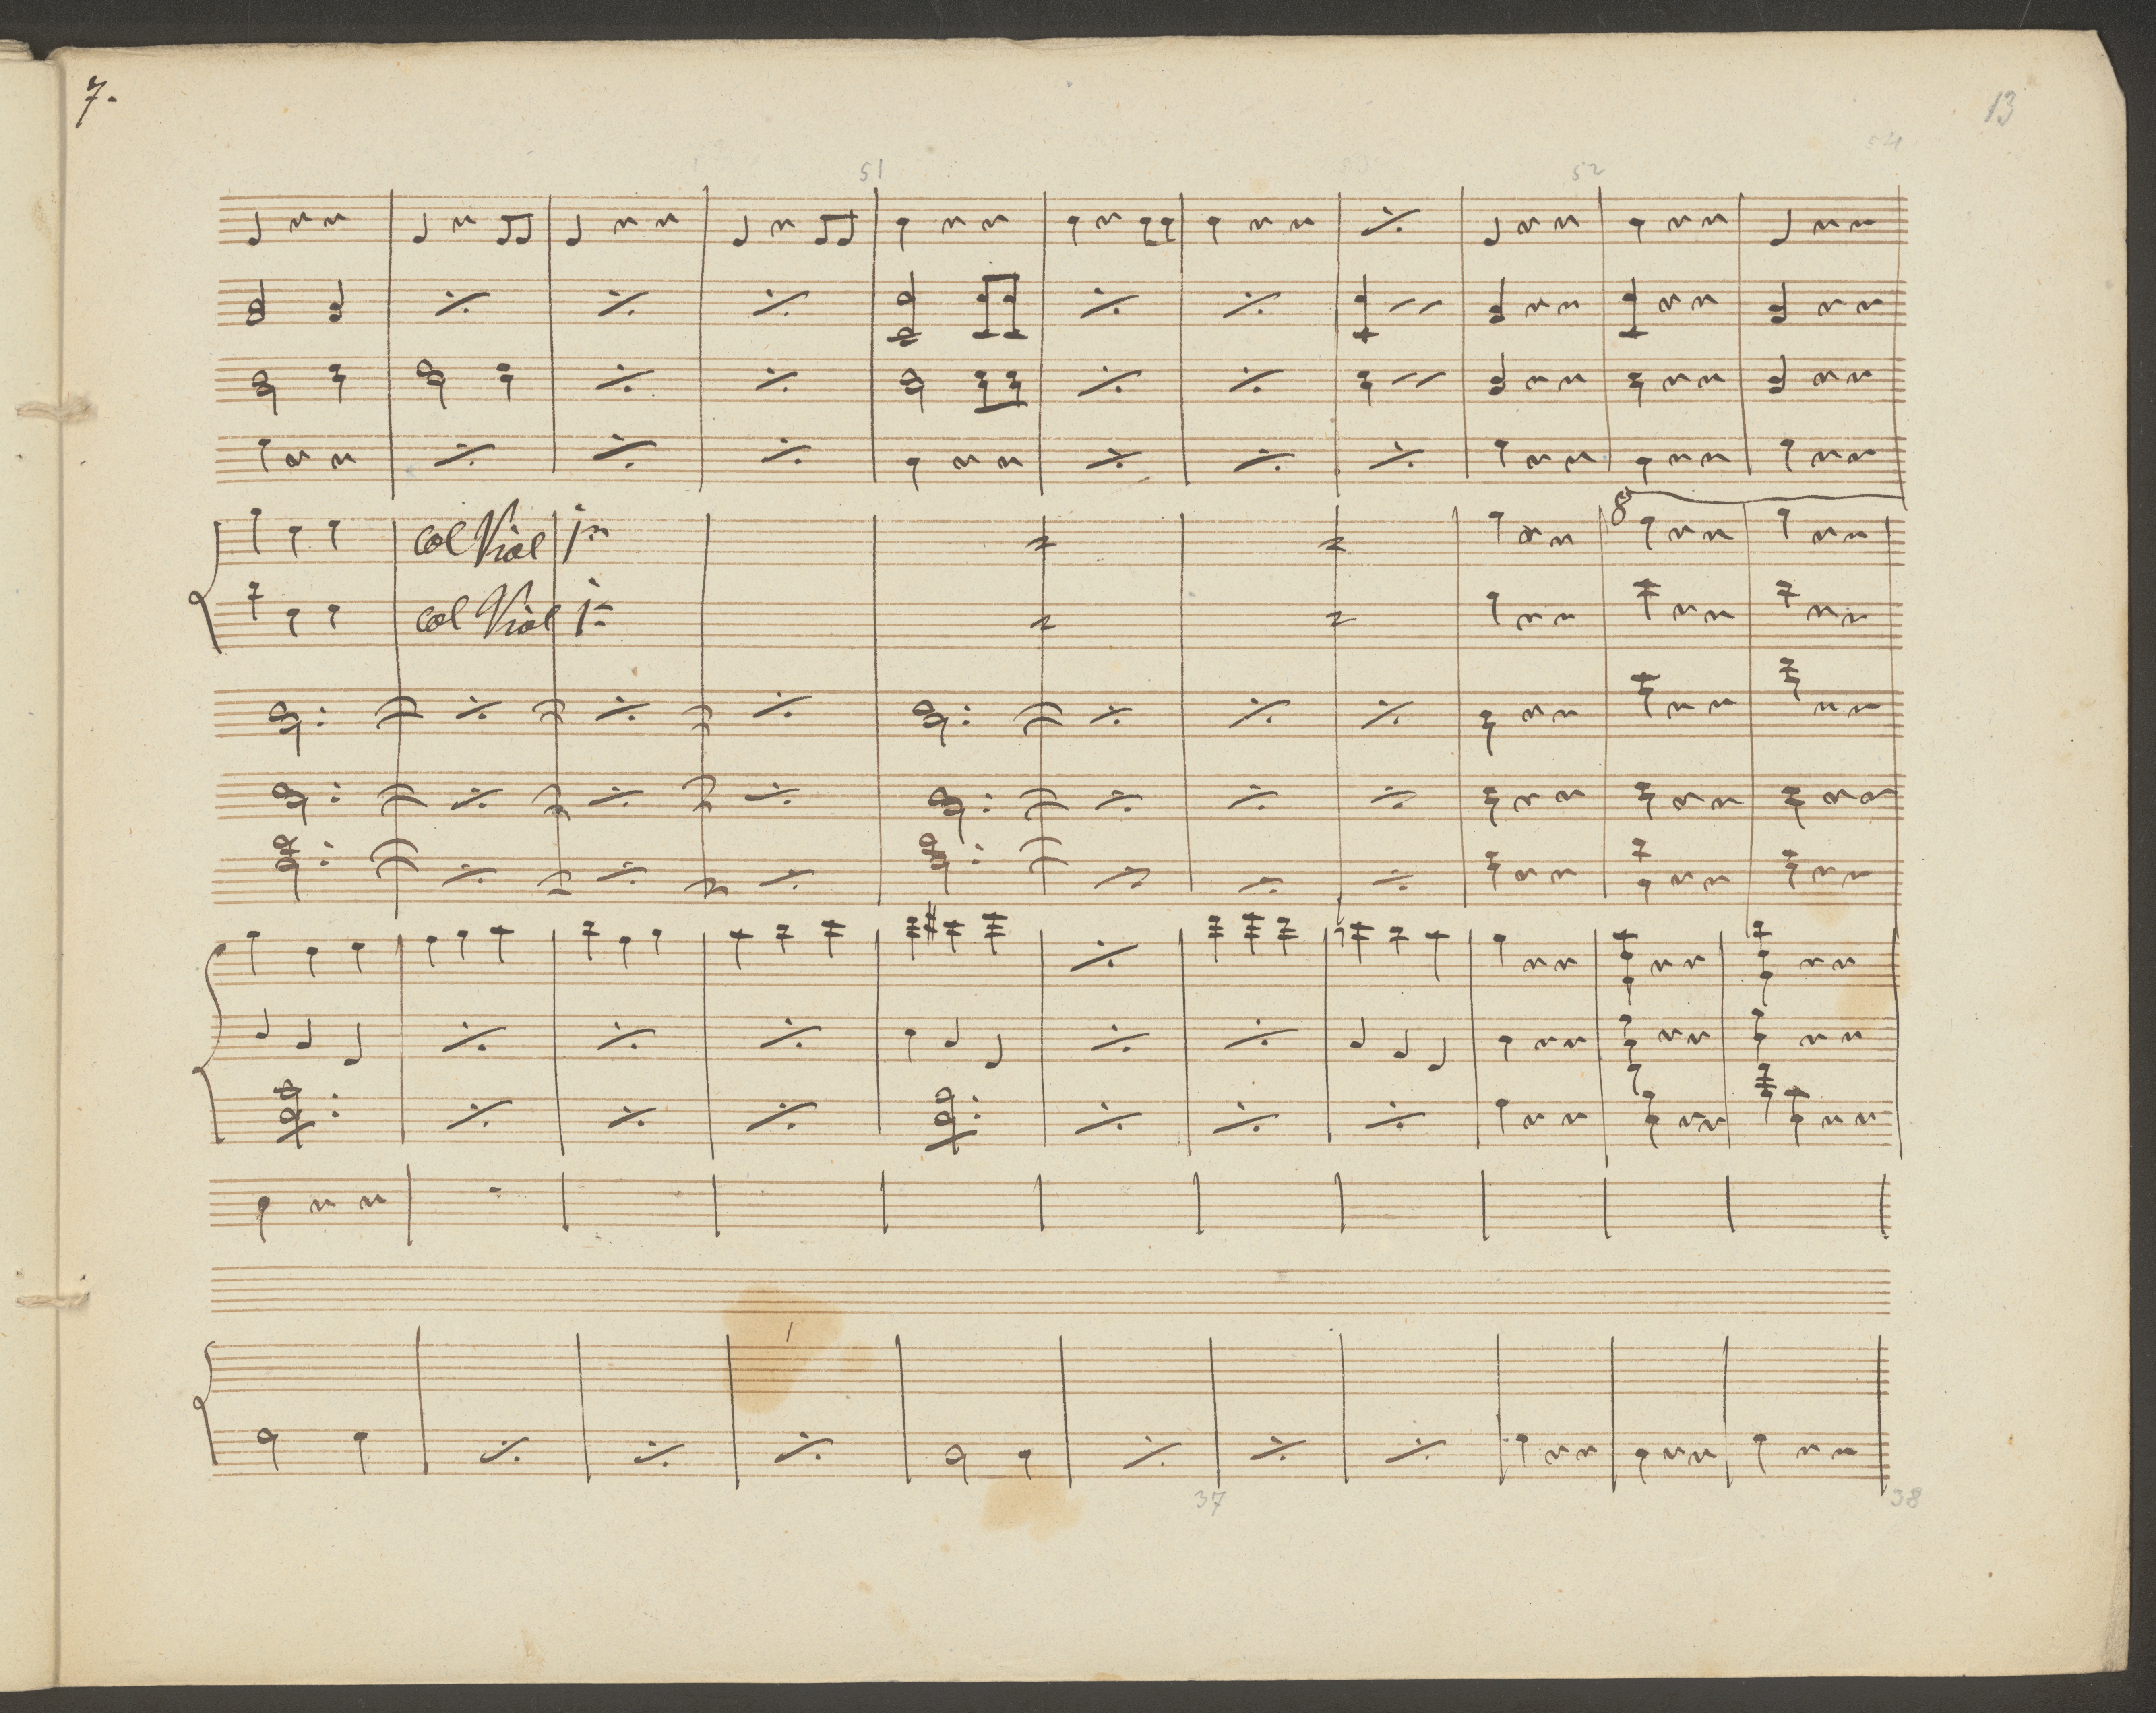 7.
13
51
52
54
col Viol 1mo
8
col Viol 1mo
37
38